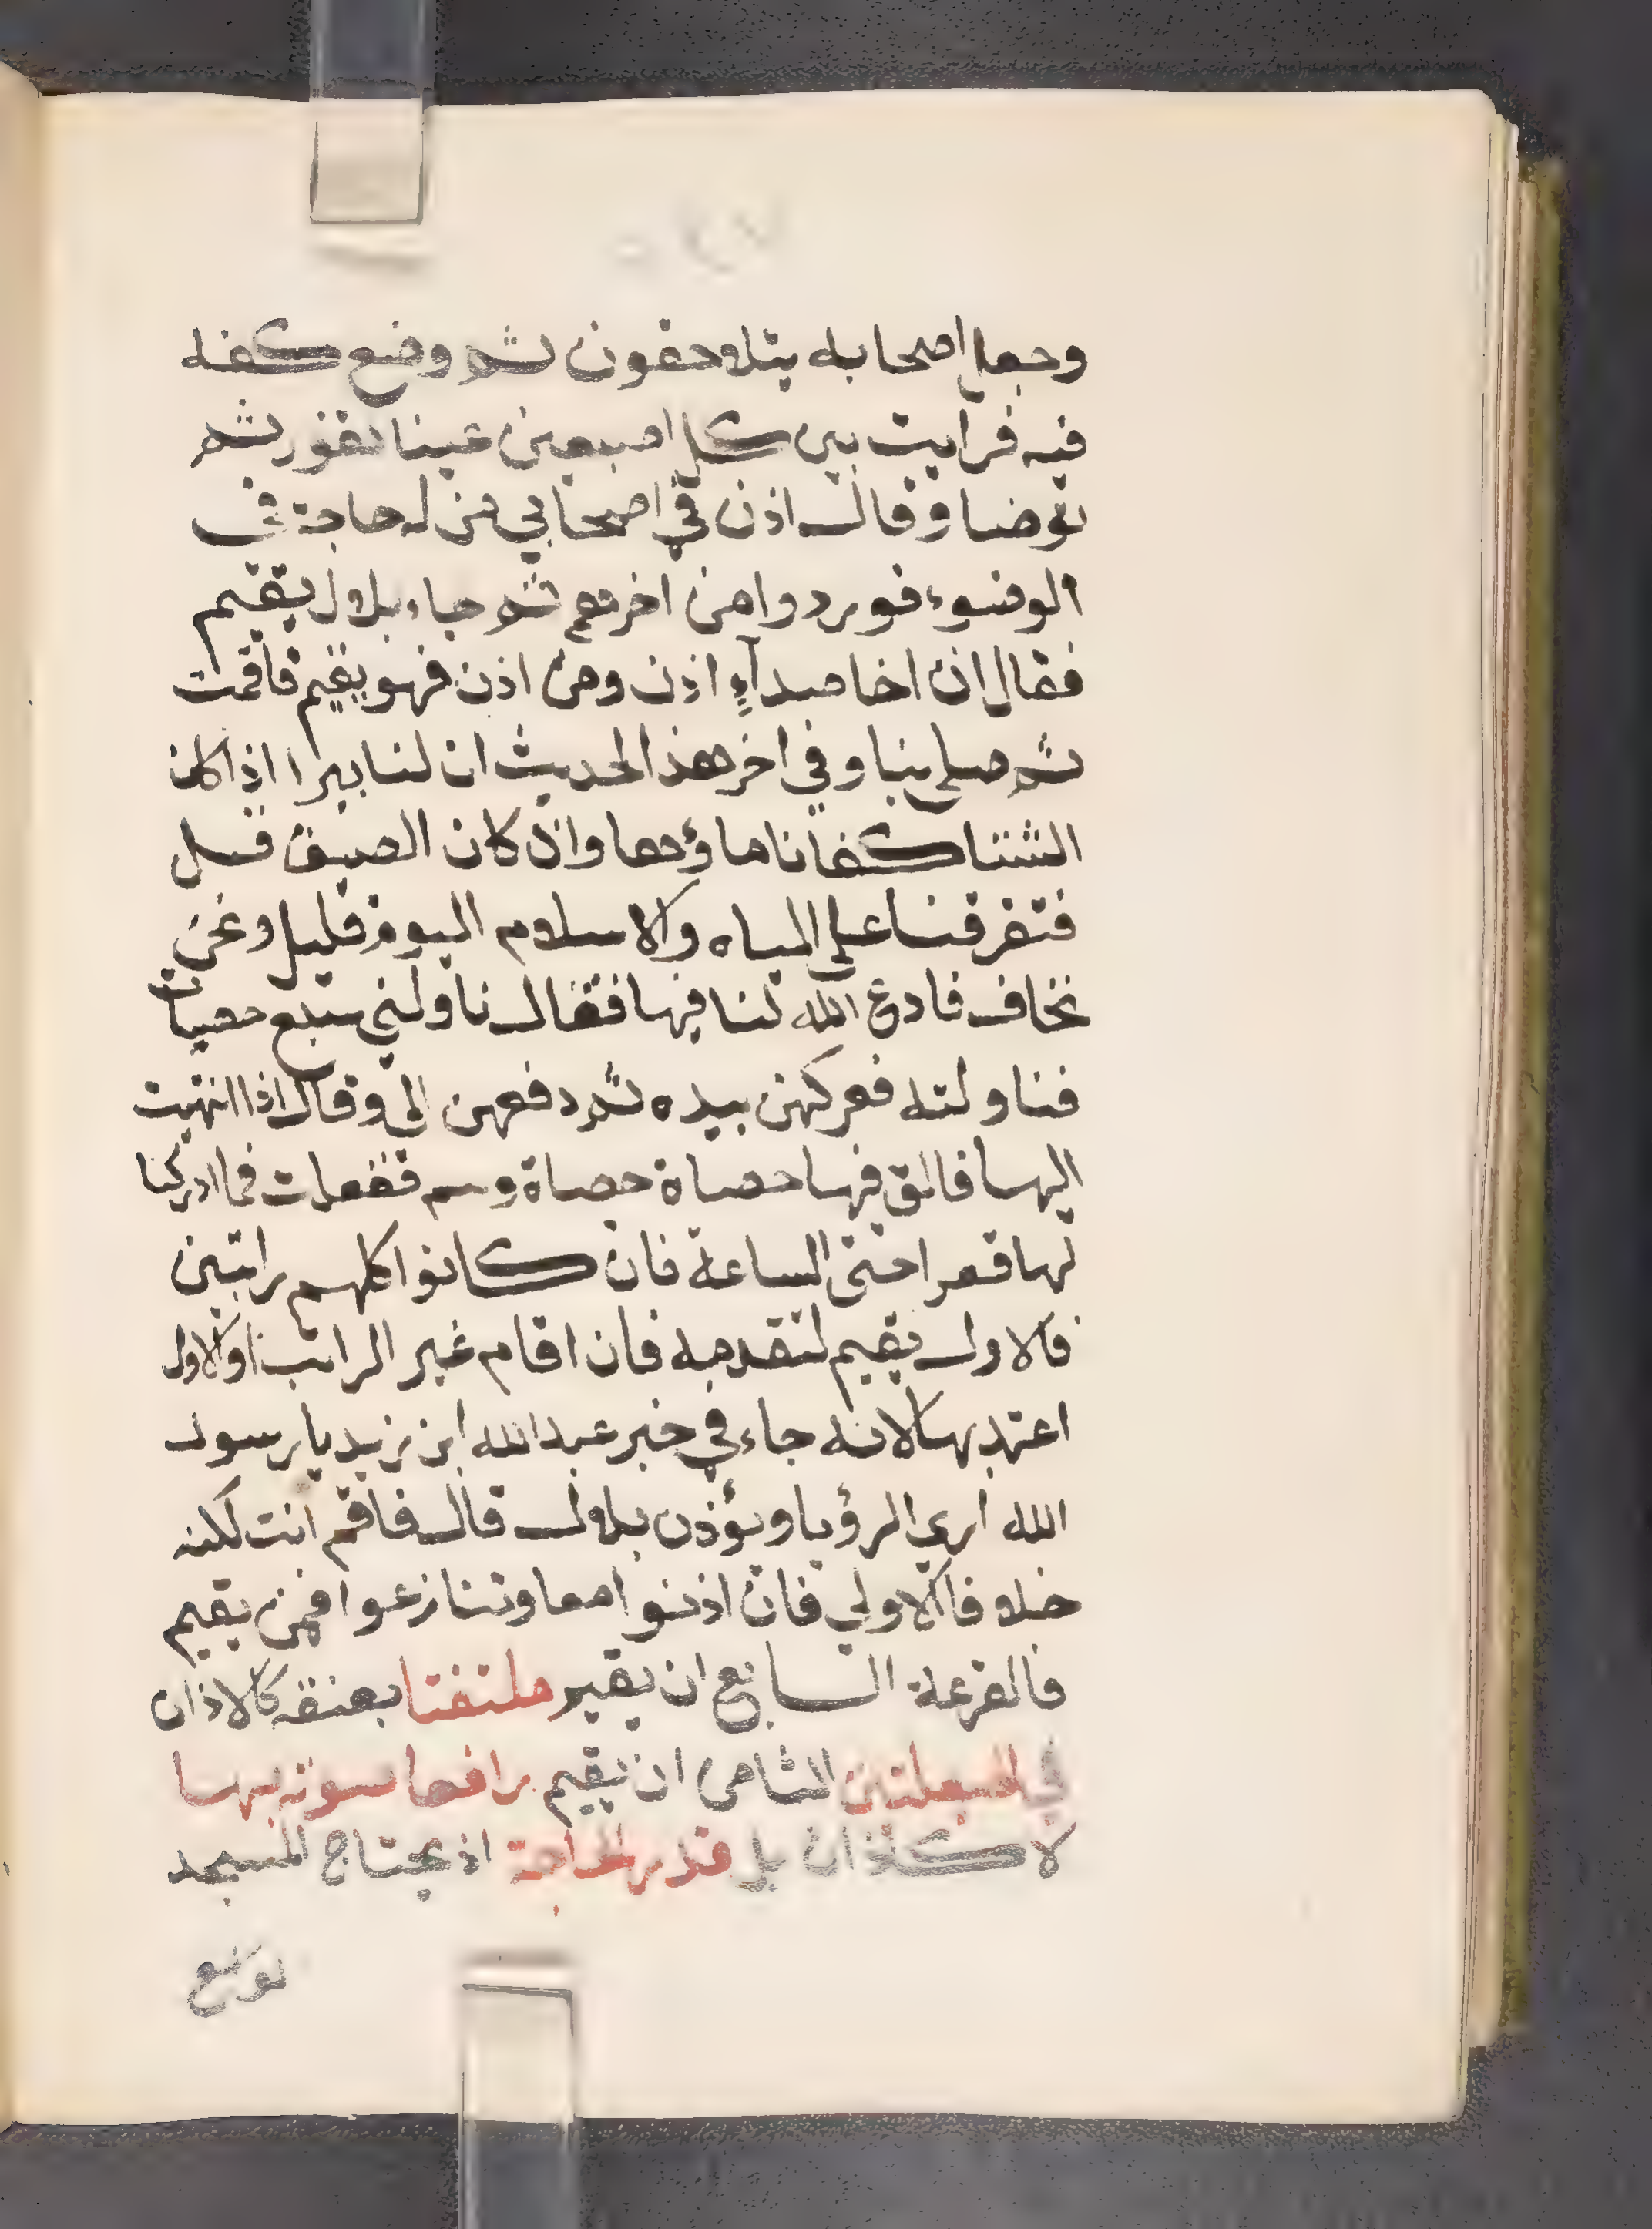 وجعل اصحابه يتلاحقون ثم وضع كفه
فيه فرايت بين كل اصبعين عينا تفور ثم
توضا وقال اذن في اصحابي من له حاجة في
الوضوء فوردوا من اخرهم ثم جاء بلال يقيم
فقال ان اخا صداء اذن ومن اذن فهو يقيم فاقمت
ثم صلى بنا وفي اخر هذ الحديث ان لنا بيرا اذا كان
الشتا كفانا ماؤها وان كان الصيف قل
فتفرقنا على المياه والاسلام اليوم قليل ونحن
نخاف فادع الله لنا فيها فقال ناولني سبع حصيات
فناولته فعركهن بيده ثم دفعهن الي وقال اذا انتهيت
اليها فالق فيها حصاة حصاة وسم ففعلت فما ادركنا
لها قعرا حتى الساعة فان كانوا كلهم راتبين
فالاول يقيم لتقدمه فان اقام غير الراتب او الاول
اعتد بها لانه جاء في خبر عبد الله ابن زيد يا رسول
الله اري الرؤيا ويؤذن بلال قال فاقم انت لكنه
خلاف الاولي فان اذنوا معا وتنازعوا فمن يقيم
فالقرعة السابع ان يقيم ملتفتا بعنقه كالاذان
في الحيعلتين الثامن ان يقيم رافعا صوته بها
لا كالاذان بل قدر الحاجة اذ يحتاج المسجد